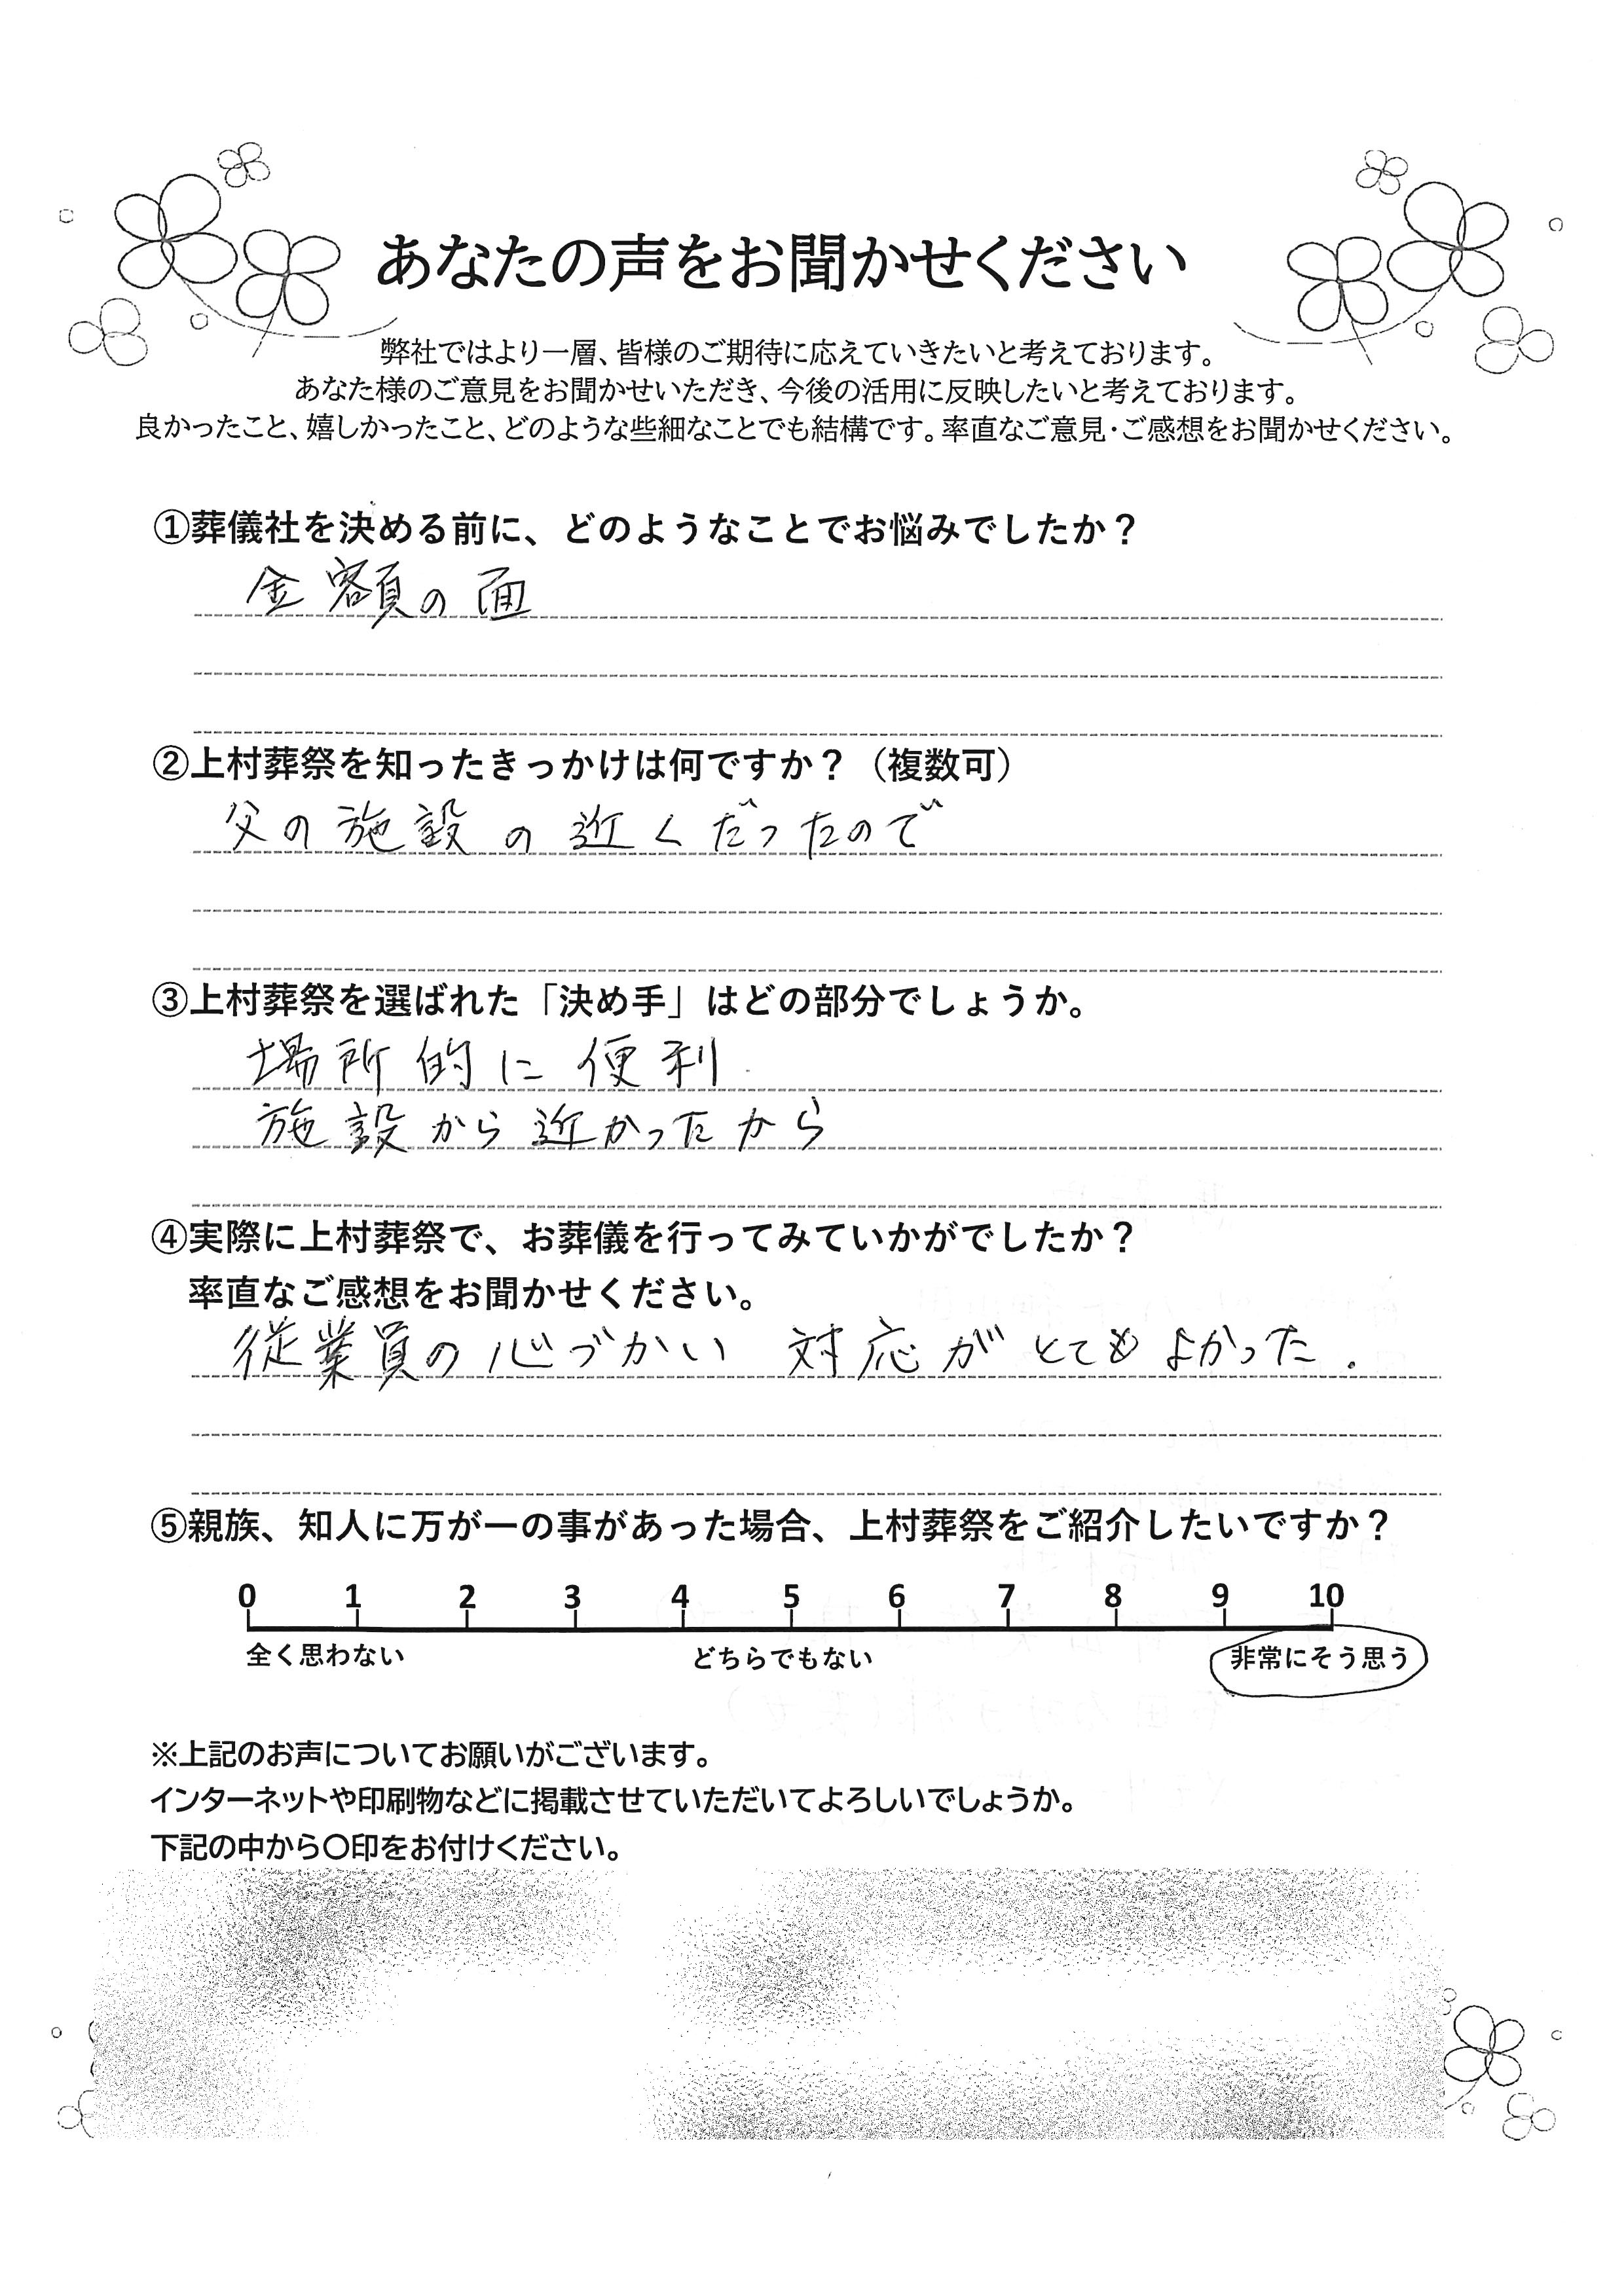 あなたの声をお聞かせください
弊社ではより一層、皆様のご期待に応えていきたいと考えております。
あなた様のご意見をお聞かせいただき、今後の活用に反映したいと考えております。
良かったこと、嬉しかったこと、どのような些細なことでも結構です。率直なご意見・ご感想をお聞かせください。
①葬儀社を決める前に、どのようなことでお悩みでしたか？
金額の面
②上村葬祭を知ったきっかけは何ですか？（複数可）
父の施設の近くだったので
③上村葬祭を選ばれた「決め手」はどの部分でしょうか。
場所的に便利
施設から近かったから
④実際に上村葬祭で、お葬儀を行ってみていかがでしたか？
率直なご感想をお聞かせください。
従業員の心づかい 対応がとてもよかった.
⑤親族、知人に万が一の事があった場合、上村葬祭をご紹介したいですか？
0 1 2 3 4 5 6 7 8 9 10
全く思わない どちらでもない 非常にそう思う
※上記のお声についてお願いがございます。
インターネットや印刷物などに掲載させていただいてよろしいでしょうか。
下記の中から〇印をお付けください。